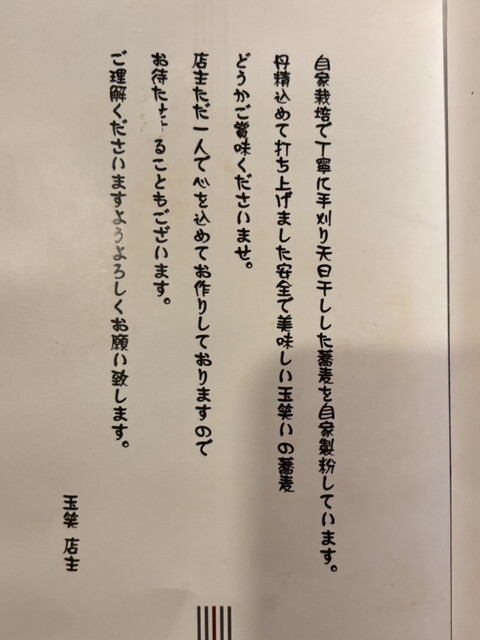 自家栽培で丁寧に手刈り天日干しした蕎麦を自家製粉しています。
丹精込めて打ち上げました安全で美味しい玉笑いの蕎麦
どうかご賞味くださいませ。
店主ただ一人で心を込めてお作りしておりますので
お待たせすることもございます。
ご理解くださいますようよろしくお願い致します。
玉笑 店主